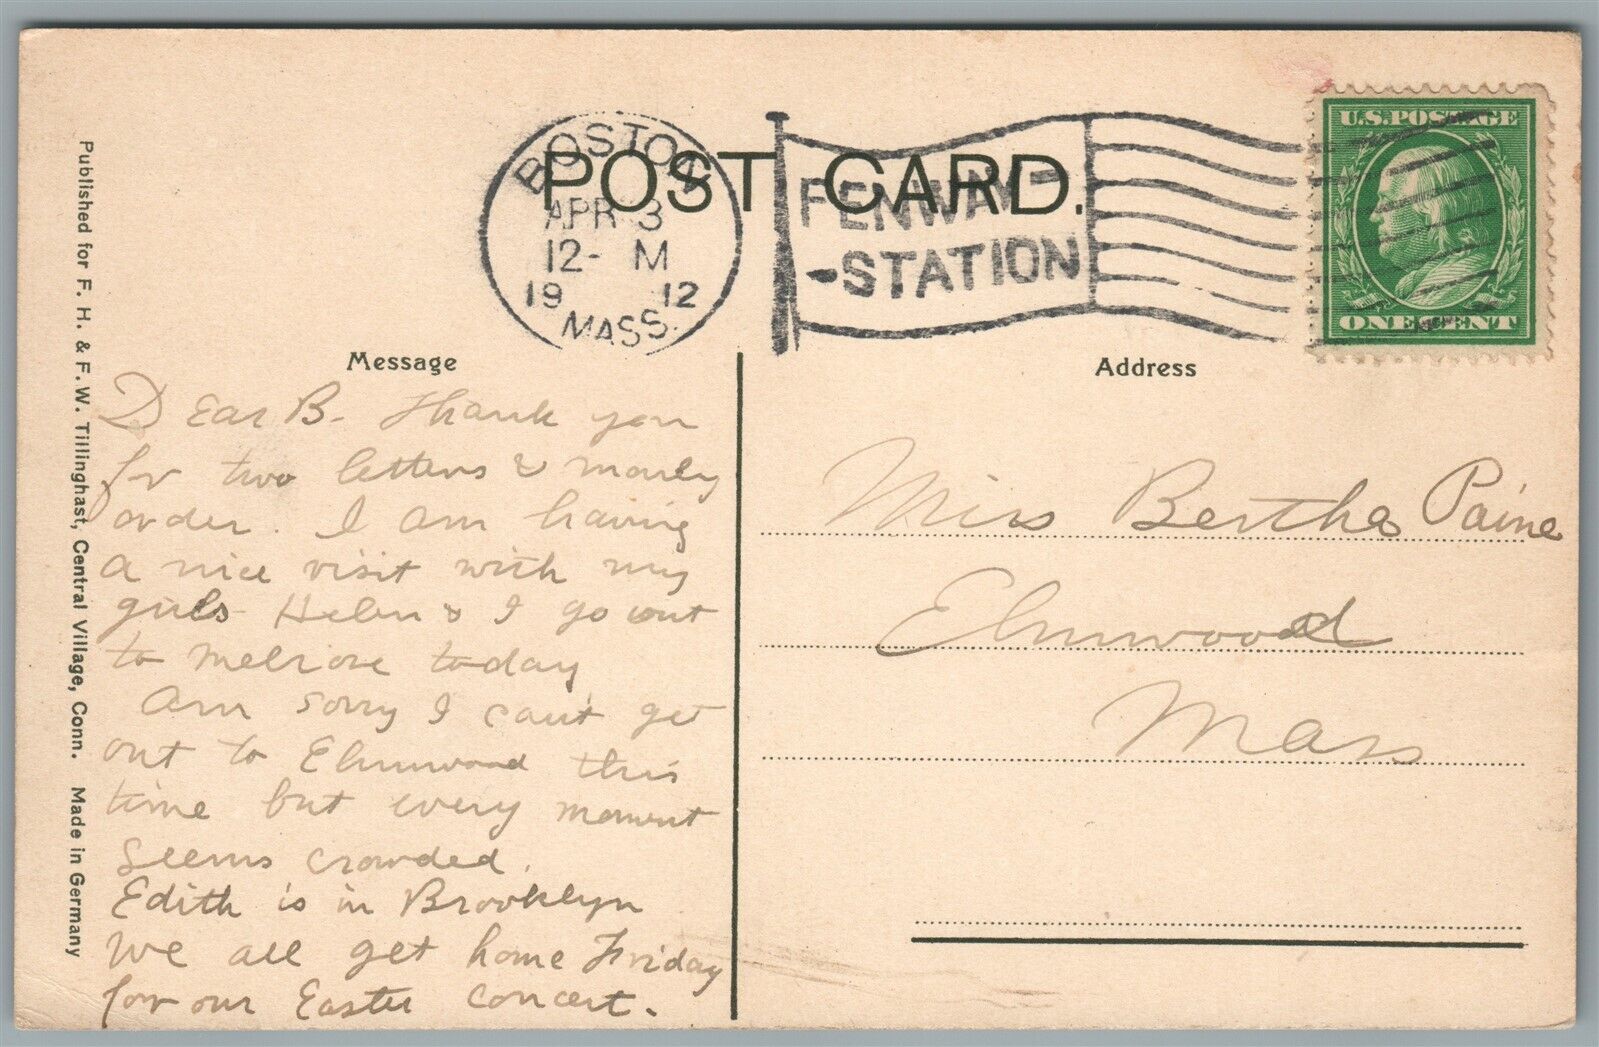 POST CARD.
BOSTON
APR 3
12- M
19 12
MASS.
FENWAY-
-STATION
U.S. POSTAGE
ONE CENT
Message
Address
Dear B- Thank you
for two letters & money
order. I am having
a nice visit with my
girls Helen & I go out
to Melrose today
Am sorry I can't get
out to Elmwood this
time but every moment
seems crowded.
Edith is in Brooklyn
We all get home Friday
for our Easter concert.
Miss Bertha Paine
Elmwood
Mass
Published for F. H. & F. W. Tillinghast, Central Village, Conn. Made in Germany